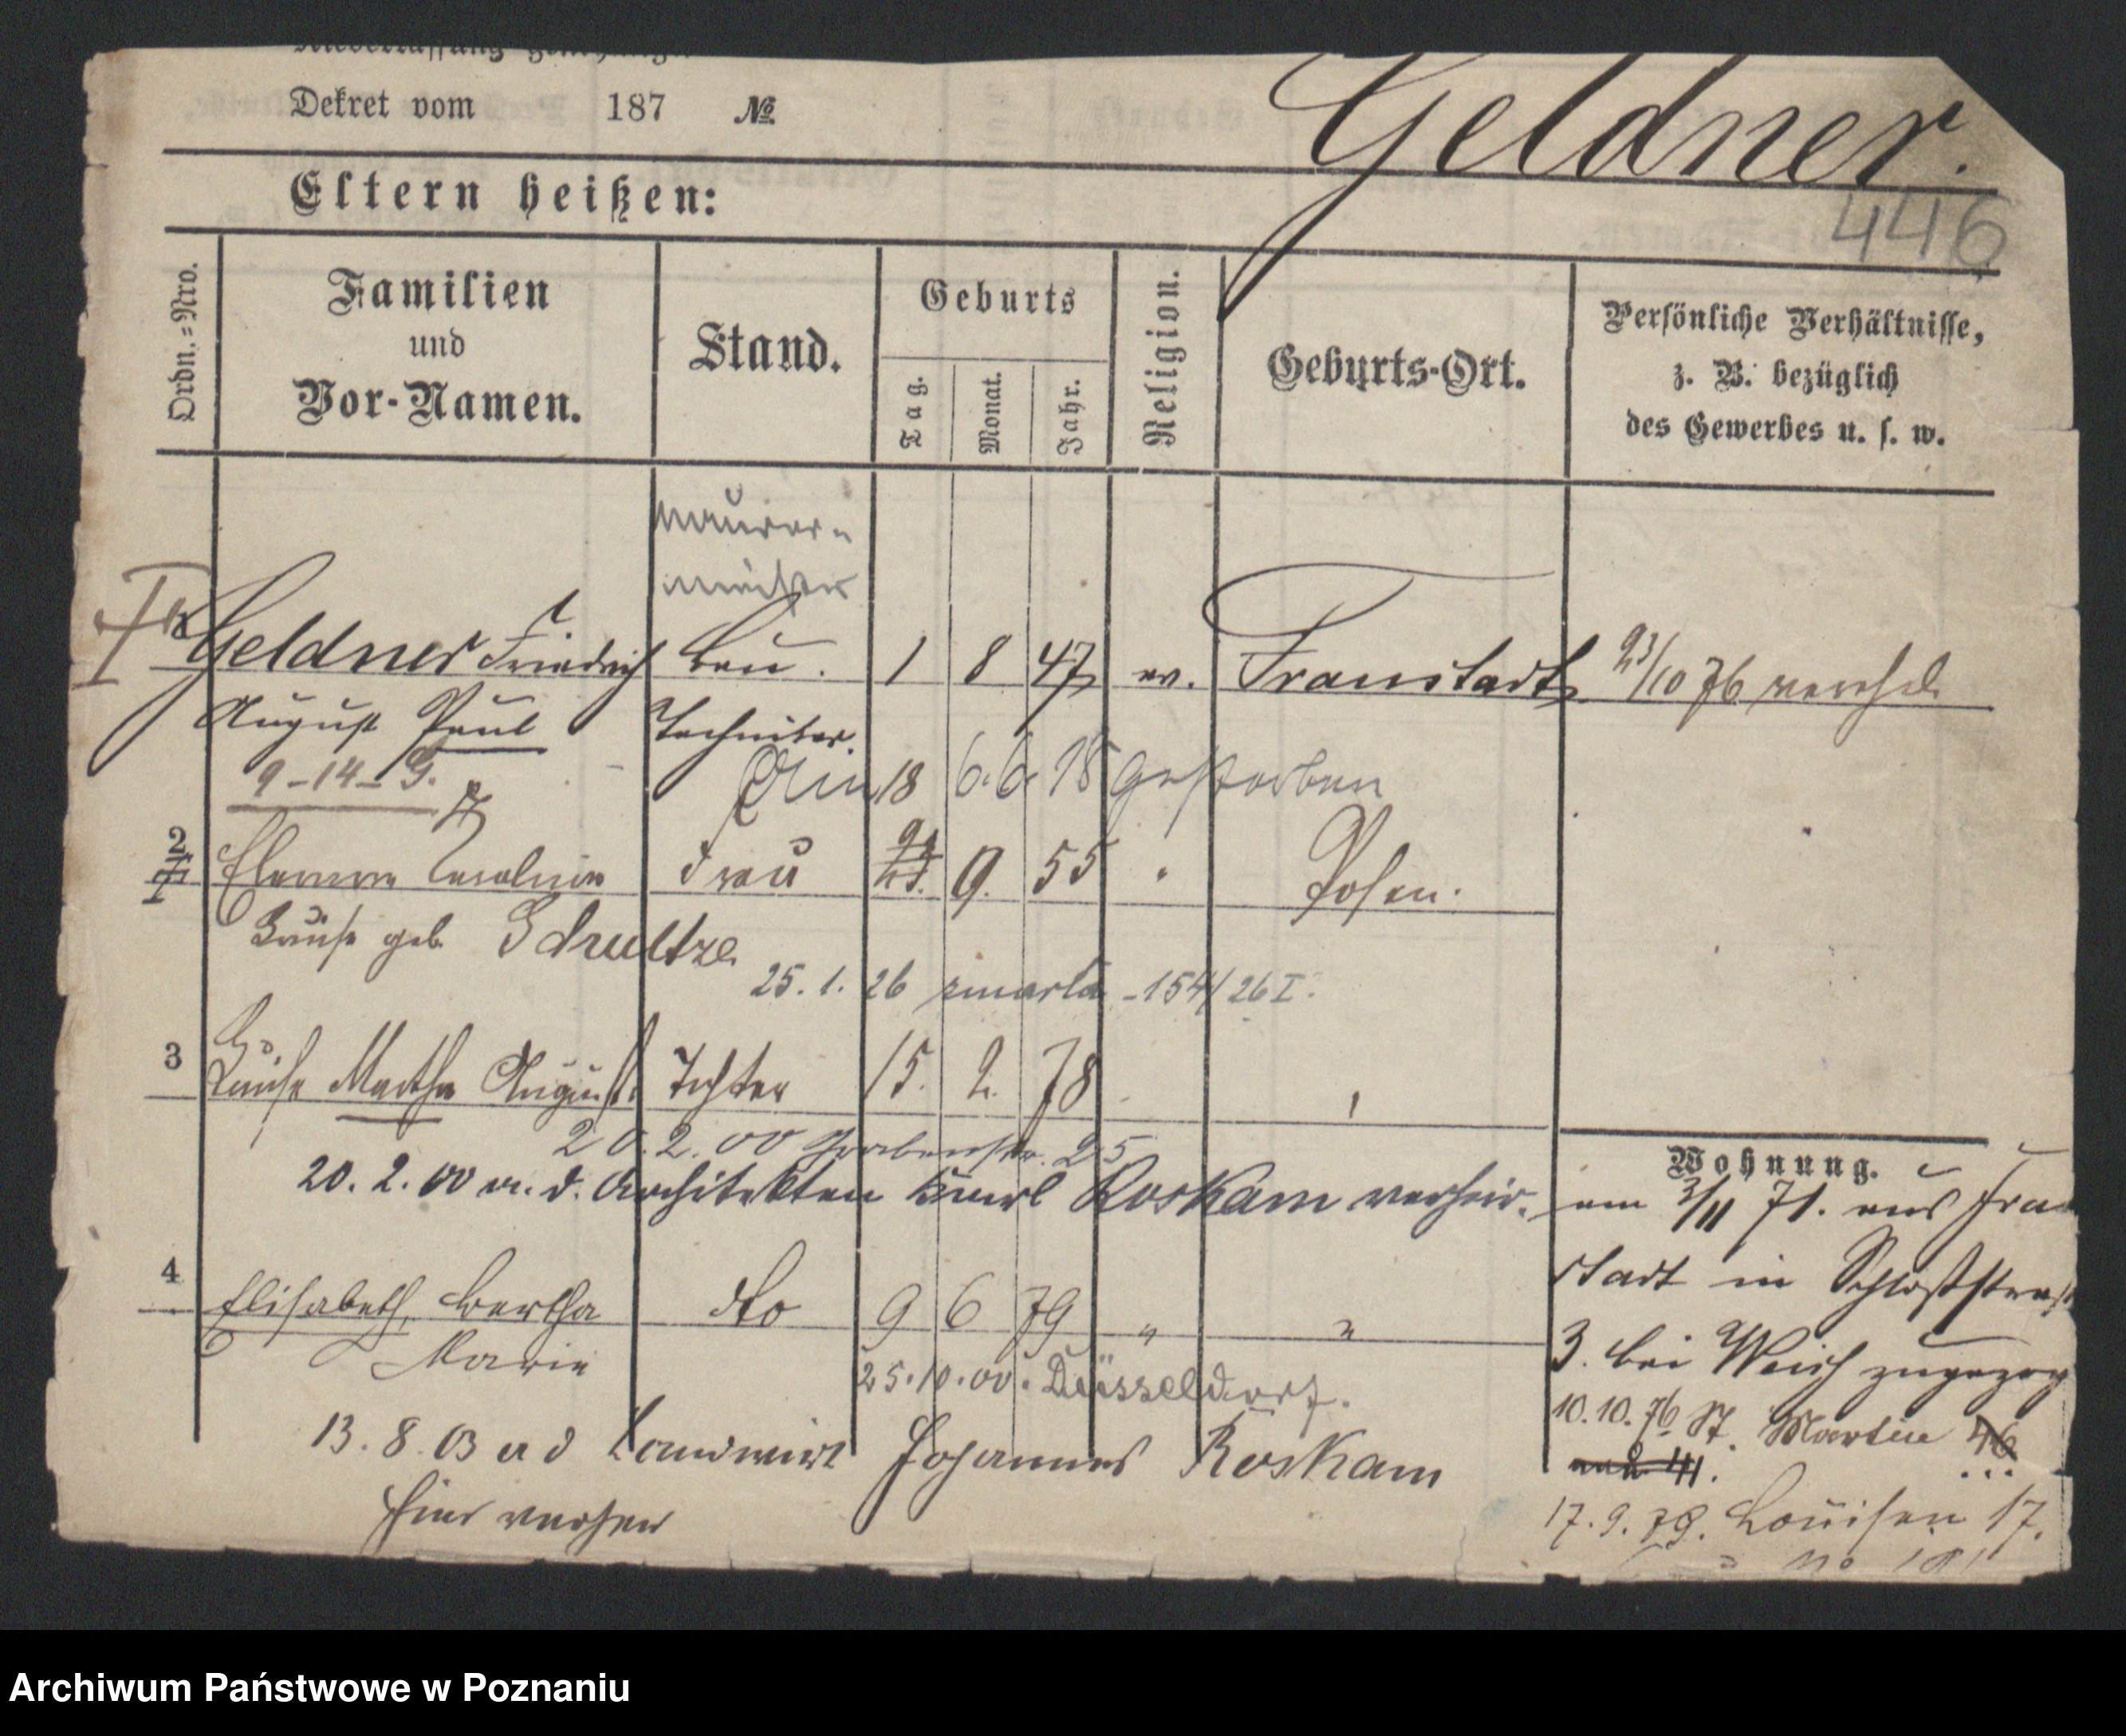 Dekret vom 187 №
Geldner.
446
Eltern heißen:
Ordn.-Nro.
Familien
und
Vor-Namen.
Stand.
Geburts
Tag.
Monat.
Jahr.
Religion.
Geburts-Ort.
Persönliche Verhältnisse,
z. B. bezüglich
des Gewerbes u. s. w.
Maurer-
meister
Geldner Friedrich Bau. 1 8 47 ev. Fraustadt 23/10 76 vereh.
August Paul Techniker.
9-14-G.
18 6.6.18 gestorben
2 Eleonore Caroline Frau 9. 55 " Posen.
Louise geb. Schultze
25.1.26 zmarła -154/26 I.
3 Louise Martha August. Tochter 15. 2. 78
20.2.00 Grabenstr. 25
20.2.00 m. d. Architekten Karl Roskam verheir.
4 Elisabeth, Bertha dto 9 6 79 " "
Marie
25.10.00. Düsseldorf.
13.8.03 a d Landwirt Johannes Roskam
hier verheir
Wohnung.
am 3/11 71. aus Frau
stadt in Schloßstraß
3. bei Weiß zugezog
10.10.76 St. Martin 46
und 41.
17.9.79. Louisen 17.
Archiwum Państwowe w Poznaniu